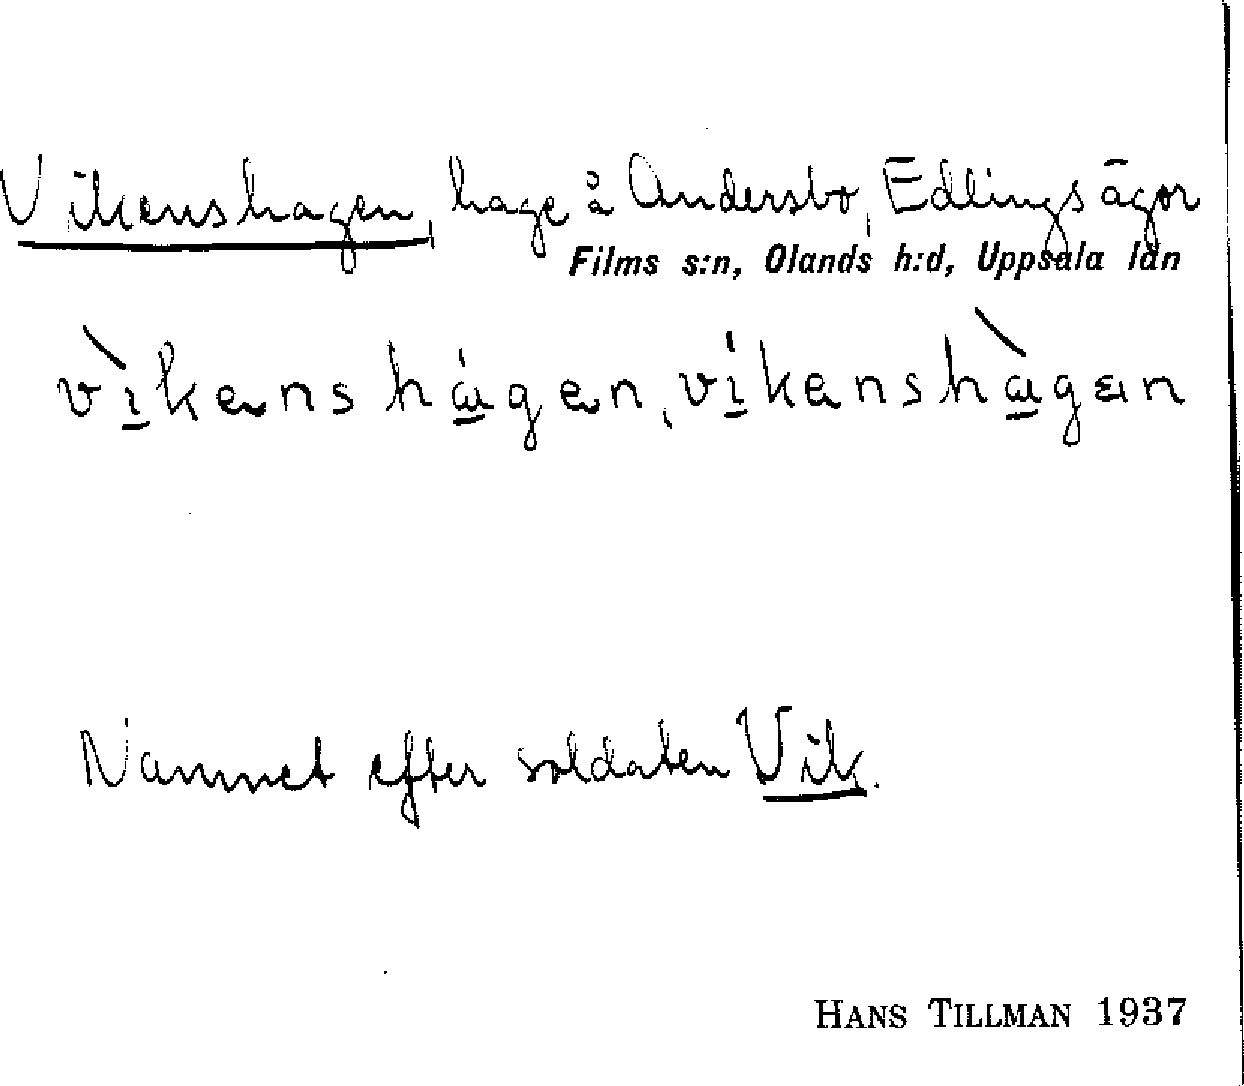 Vikenshagen, hage å Andersbo, Edlings ägor
Films s:n, Olands h:d, Uppsala län
vìkenshágen, víkenshàgen
Namnet efter soldaten Vik.
HANS TILLMAN 1937